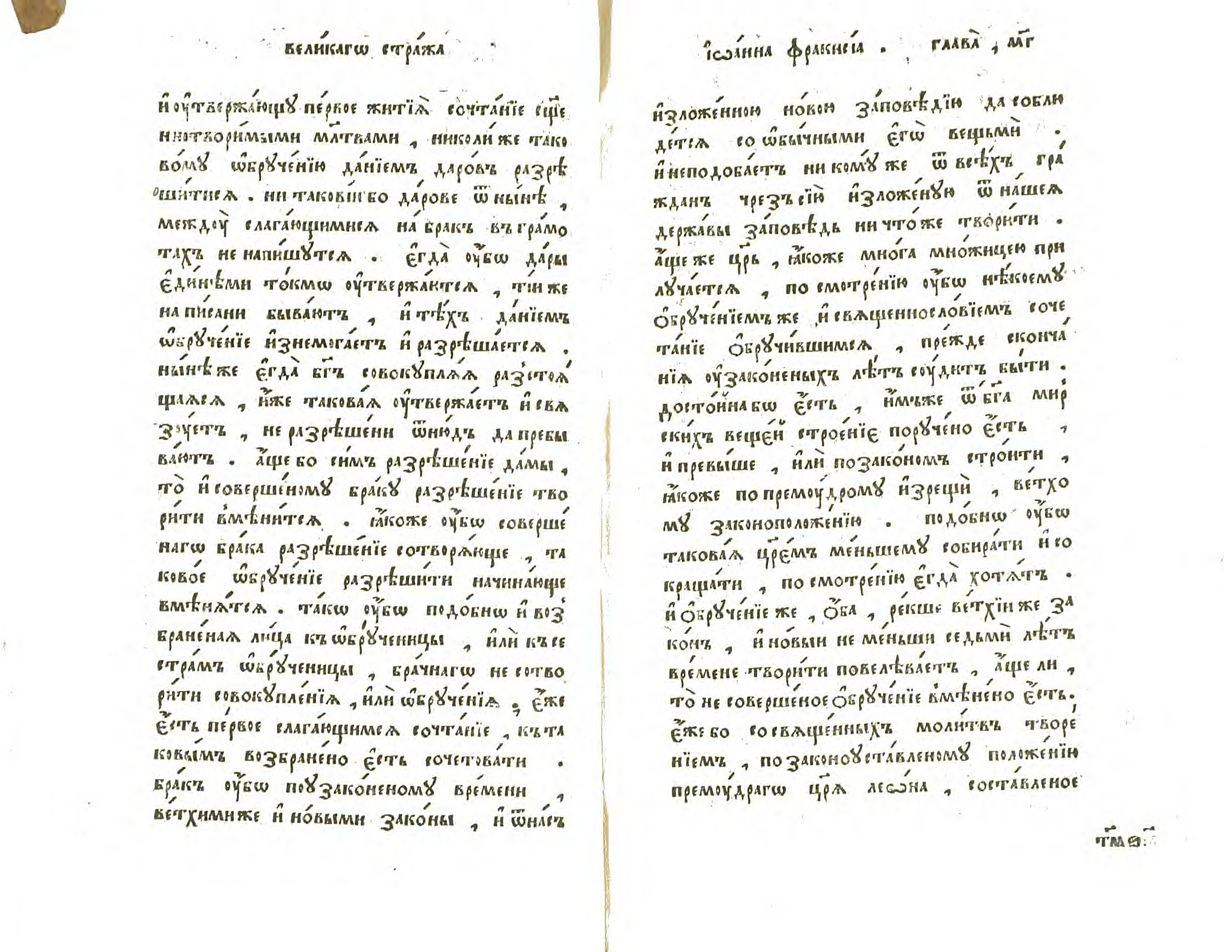 вели́кагѡ стра́жа
и҆ ᲂу҆твержа́ющу пе́рвое житїѧ̀ сочта́нїе сщ҃е
ннотвори́мыми мл҃твами , николи́ же тако
во́му ѡ҆бруче́нїю да́нїемъ даро́въ разрѣ
ши́тисѧ . ни такові́и бо да́рове ѿ ны́нѣ ,
междоу̀ слага́ющимисѧ на́ бракъ въ гра́мо
тахъ не напи́шутсѧ . є҆гда̀ ᲂу҆́бѡ да́ры
є҆ди́нѣми то́кмѡ ᲂу҆твержа́ютсѧ , ті́и же
на пи́сани быва́ютъ , и҆ тѣ́хъ да́нїемъ
ѡ҆бруче́нїе и҆знемога́етъ и҆ разрѣша́етсѧ .
ны́нѣ же є҆гда̀ бг҃ъ совокуплѧ́ѧ разстоѧ́
щаѧсѧ , и҆́же такова́ѧ ᲂу҆твержа́етъ и҆ свѧ
зу́етъ , не разрѣше́ни ѿню́дъ да пребы
ва́ютъ . а҆́ще бо си́мъ разрѣше́нїе да́мы ,
то̀ и҆ соверше́ному бра́ку разрѣше́нїе тво
ри́ти вмѣни́тсѧ . ꙗ҆́коже ᲂу҆́бѡ соверше́
нагѡ бра́ка разрѣше́нїе сотворѧ́юще , та
ково́е ѡ҆бруче́нїе разрѣши́ти начина́юще
вмѣнѧ́тсѧ . та́кѡ ᲂу҆́бѡ подо́бнѡ и҆ воз
бране́наѧ ли́ца къ ѡ҆бру́ченицы , и҆лѝ къ се
стра́мъ ѡ҆бру́ченицы , бра́чнагѡ не сотво
ри́ти совокупле́нїѧ , и҆лѝ ѡ҆бруче́нїѧ . є҆́же
є҆́сть пе́рвое слага́ющимсѧ сочта́нїе , къ та
ковы́мъ возбране́но є҆́сть сочетова́ти .
бра́къ ᲂу҆́бѡ по ᲂу҆зако́неному вре́мени ,
ве́тхими же и҆ но́выми зако́ны , и҆ ѿ на́съ
і҆ѡа́нна ѳракисі́а . глава̀ , мг҃
и҆зложе́нною но́вою за́повѣдїю да соблю
де́тсѧ со ѡ҆бы́чными є҆гѡ̀ вещьмѝ .
и҆ неподоба́етъ ни кому́ же ѿ всѣ́хъ гра́
жданъ чрезъ сїю̀ и҆зложе́ную ѿ на́шеѧ
держа́вы за́повѣдь ни что́ же твори́ти .
а҆́ще же цр҃ь , ꙗ҆́коже мно́га мно́жицею при
луча́етсѧ , по смотре́нїю ᲂу҆́бѡ нѣ́коему
ѻ҆бруче́нїемъ же и҆ свѧщеннослові́емъ соче
та́нїе ѻ҆бручи́вшимсѧ , пре́жде сконча́
нїѧ ᲂу҆зако́неныхъ лѣ́тъ соу́дитъ бы́ти .
досто́йна бѡ є҆́сть , и҆́мъже ѿ бг҃а мир
ски́хъ веще́й строе́нїе поруче́но є҆́сть ,
и҆ превы́ше , и҆лѝ по зако́номъ стро́ити ,
ꙗ҆́коже по премоу́дрому и҆зрещѝ , ве́тхо
му законоположе́нїю . подо́бнѡ ᲂу҆́бѡ
такова́ѧ цр҃емъ ме́ньшему собира́ти и҆ со
краща́ти , по смотре́нїю є҆гда̀ хотѧ́тъ .
и҆ ѻ҆бруче́нїе же , ѻ҆́ба , ре́кше ве́тхїи же за
ко́нъ , и҆ но́выи не ме́ньши седьмѝ лѣ́тъ
вре́мене твори́ти повелѣва́етъ , а҆́ще ли ,
то̀ не соверше́ное ѻ҆бруче́нїе вмѣне́но є҆́сть .
є҆́же бо со свѧще́нныхъ моли́твъ творе́
нїемъ , по законоуста́вленому положе́нїю
премоу́драгѡ цр҃ѧ леѡ́на , соста́вленое
тм҃ѳ: